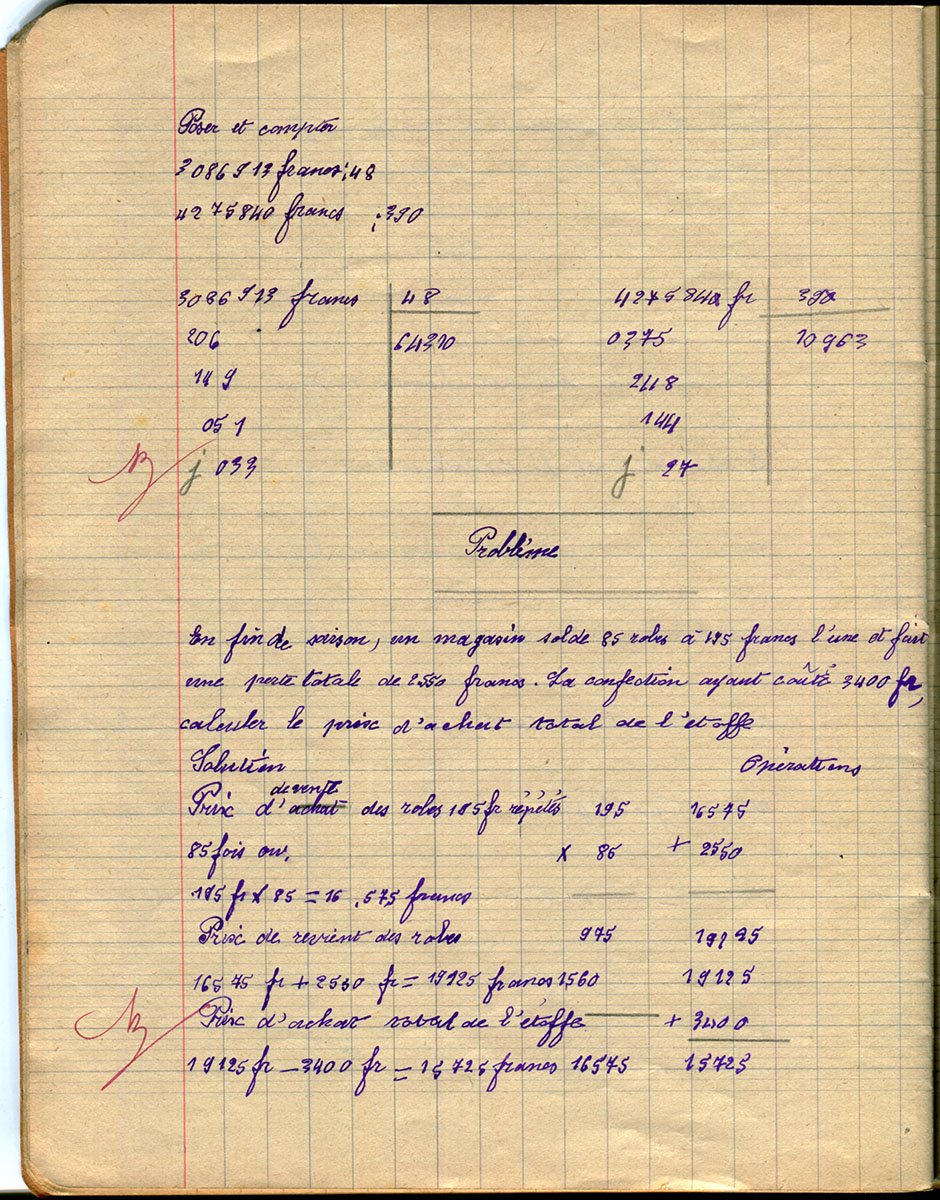 Poser et compter
3086913 francs : 48
4275840 francs : 390
3086913 francs 48 4275840 fr 390
206 64310 0375 10963
149 248
051 144
B j 033 j 27
Problème
En fin de saison, un magasin solde 85 robes à 195 francs l'une et fait
une perte totale de 2550 francs. La confection ayant coûté 3400 fr,
calculer le prix d'achat total de l'étoffe
Solution Opérations
de vente
Prix d'achat des robes 195 fr répétés 195 16575
85 fois ou, × 85 + 2550
195 fr × 85 = 16.575 francs
Prix de revient des robes 975 19125
16575 fr + 2550 fr = 19125 francs 1560 19125
B Prix d'achat total de l'étoffe + 3400
19125 fr — 3400 fr = 15725 francs 16575 15725